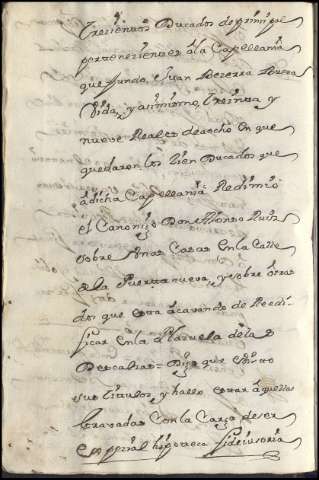 Trescientos Ducados de prinzipal
pertenecientes a la Capellania
que fundo, Juan Bezerra
Vida, y asimismo, treinta y
nueve Reales de ocho en que
quedaron los Zien Ducados que
a dicha Capellania Redimio
el Canonigo Don Alonso Ruiz
sobre Unas Casas en la Calle
de la Puerta nueva, y sobre otras
dos que esta acavando de Reedi
ficar en la Plazuela de la
Descalzas = Dijo que ha visto
sus titulos, y hallo estar aquellas
Gravadas con la Carga de ser
espezial hipoteca fideiusoria